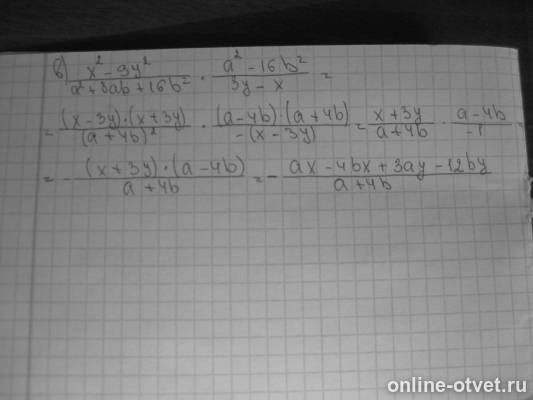 в) (x² - 9y²)/(a² + 8ab + 16b²) · (a² - 16b²)/(3y - x) =
= ((x - 3y)·(x + 3y))/((a + 4b)²) · ((a - 4b)·(a + 4b))/(-(x - 3y)) = (x + 3y)/(a + 4b) · (a - 4b)/(-1) =
= - ((x + 3y)·(a - 4b))/(a + 4b) = - (ax - 4bx + 3ay - 12by)/(a + 4b)
online-otvet.ru